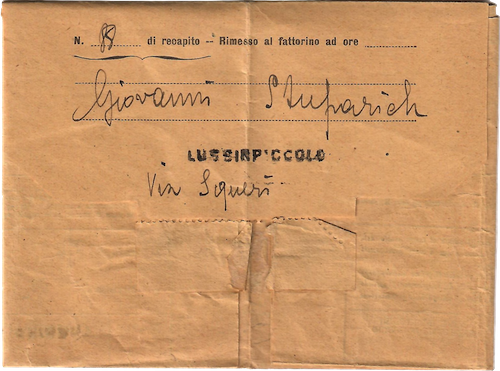 N. 88 di recapito -- Rimesso al fattorino ad ore
Giovanni Stuparich
LUSSINPICCOLO
Via Squeri